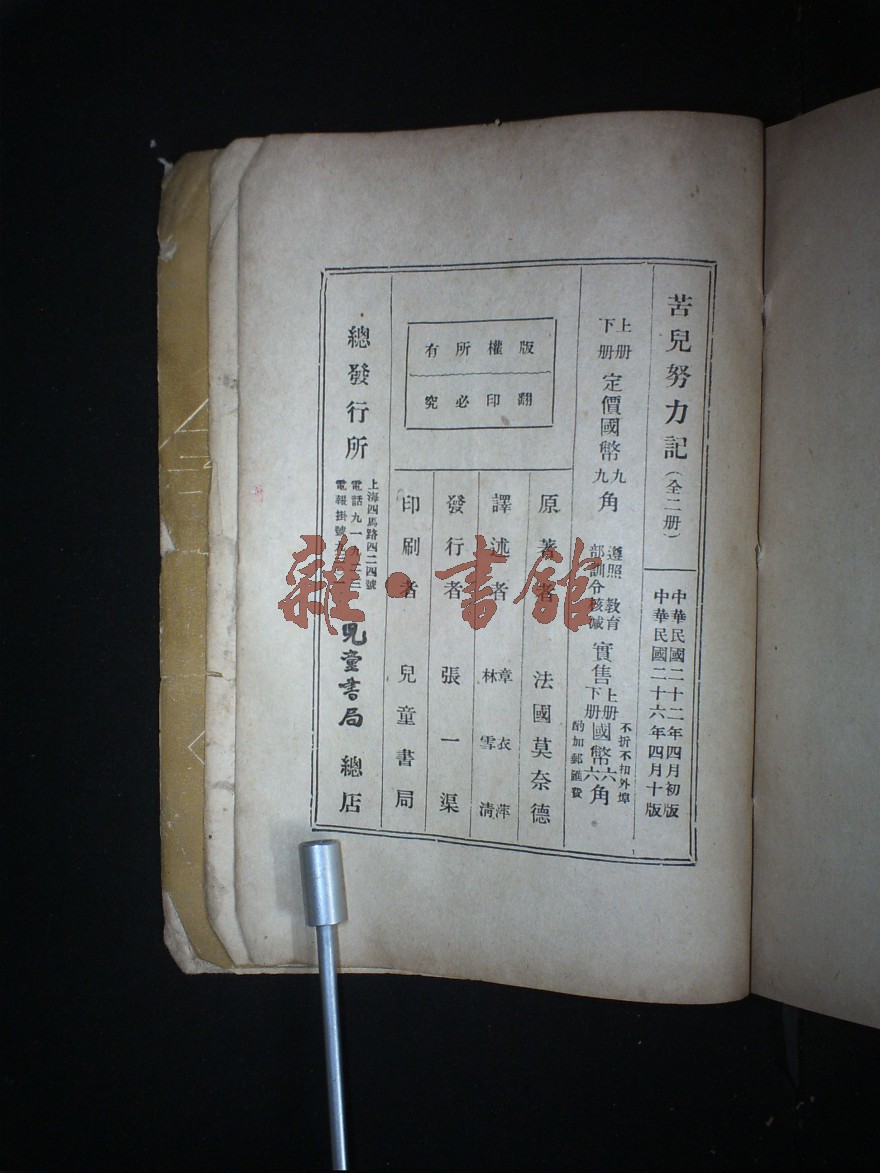 苦兒努力記(全二册)
中華民國二十二年四月初版
中華民國二十六年四月十版
上册
下册
定價國幣
九
九
角
遵照 教育
部訓令核減
實售
上册
下册
國幣
六
六
角
不折不扣外埠
酌加郵匯費
版權所有
翻印必究
原著者 法國莫奈德
譯述者 章衣萍
林雪清
發行者 張一渠
印刷者 兒童書局
總發行所
上海四馬路四二四號
電話九一九二三
電報掛號
兒童書局
總店
雜·書館